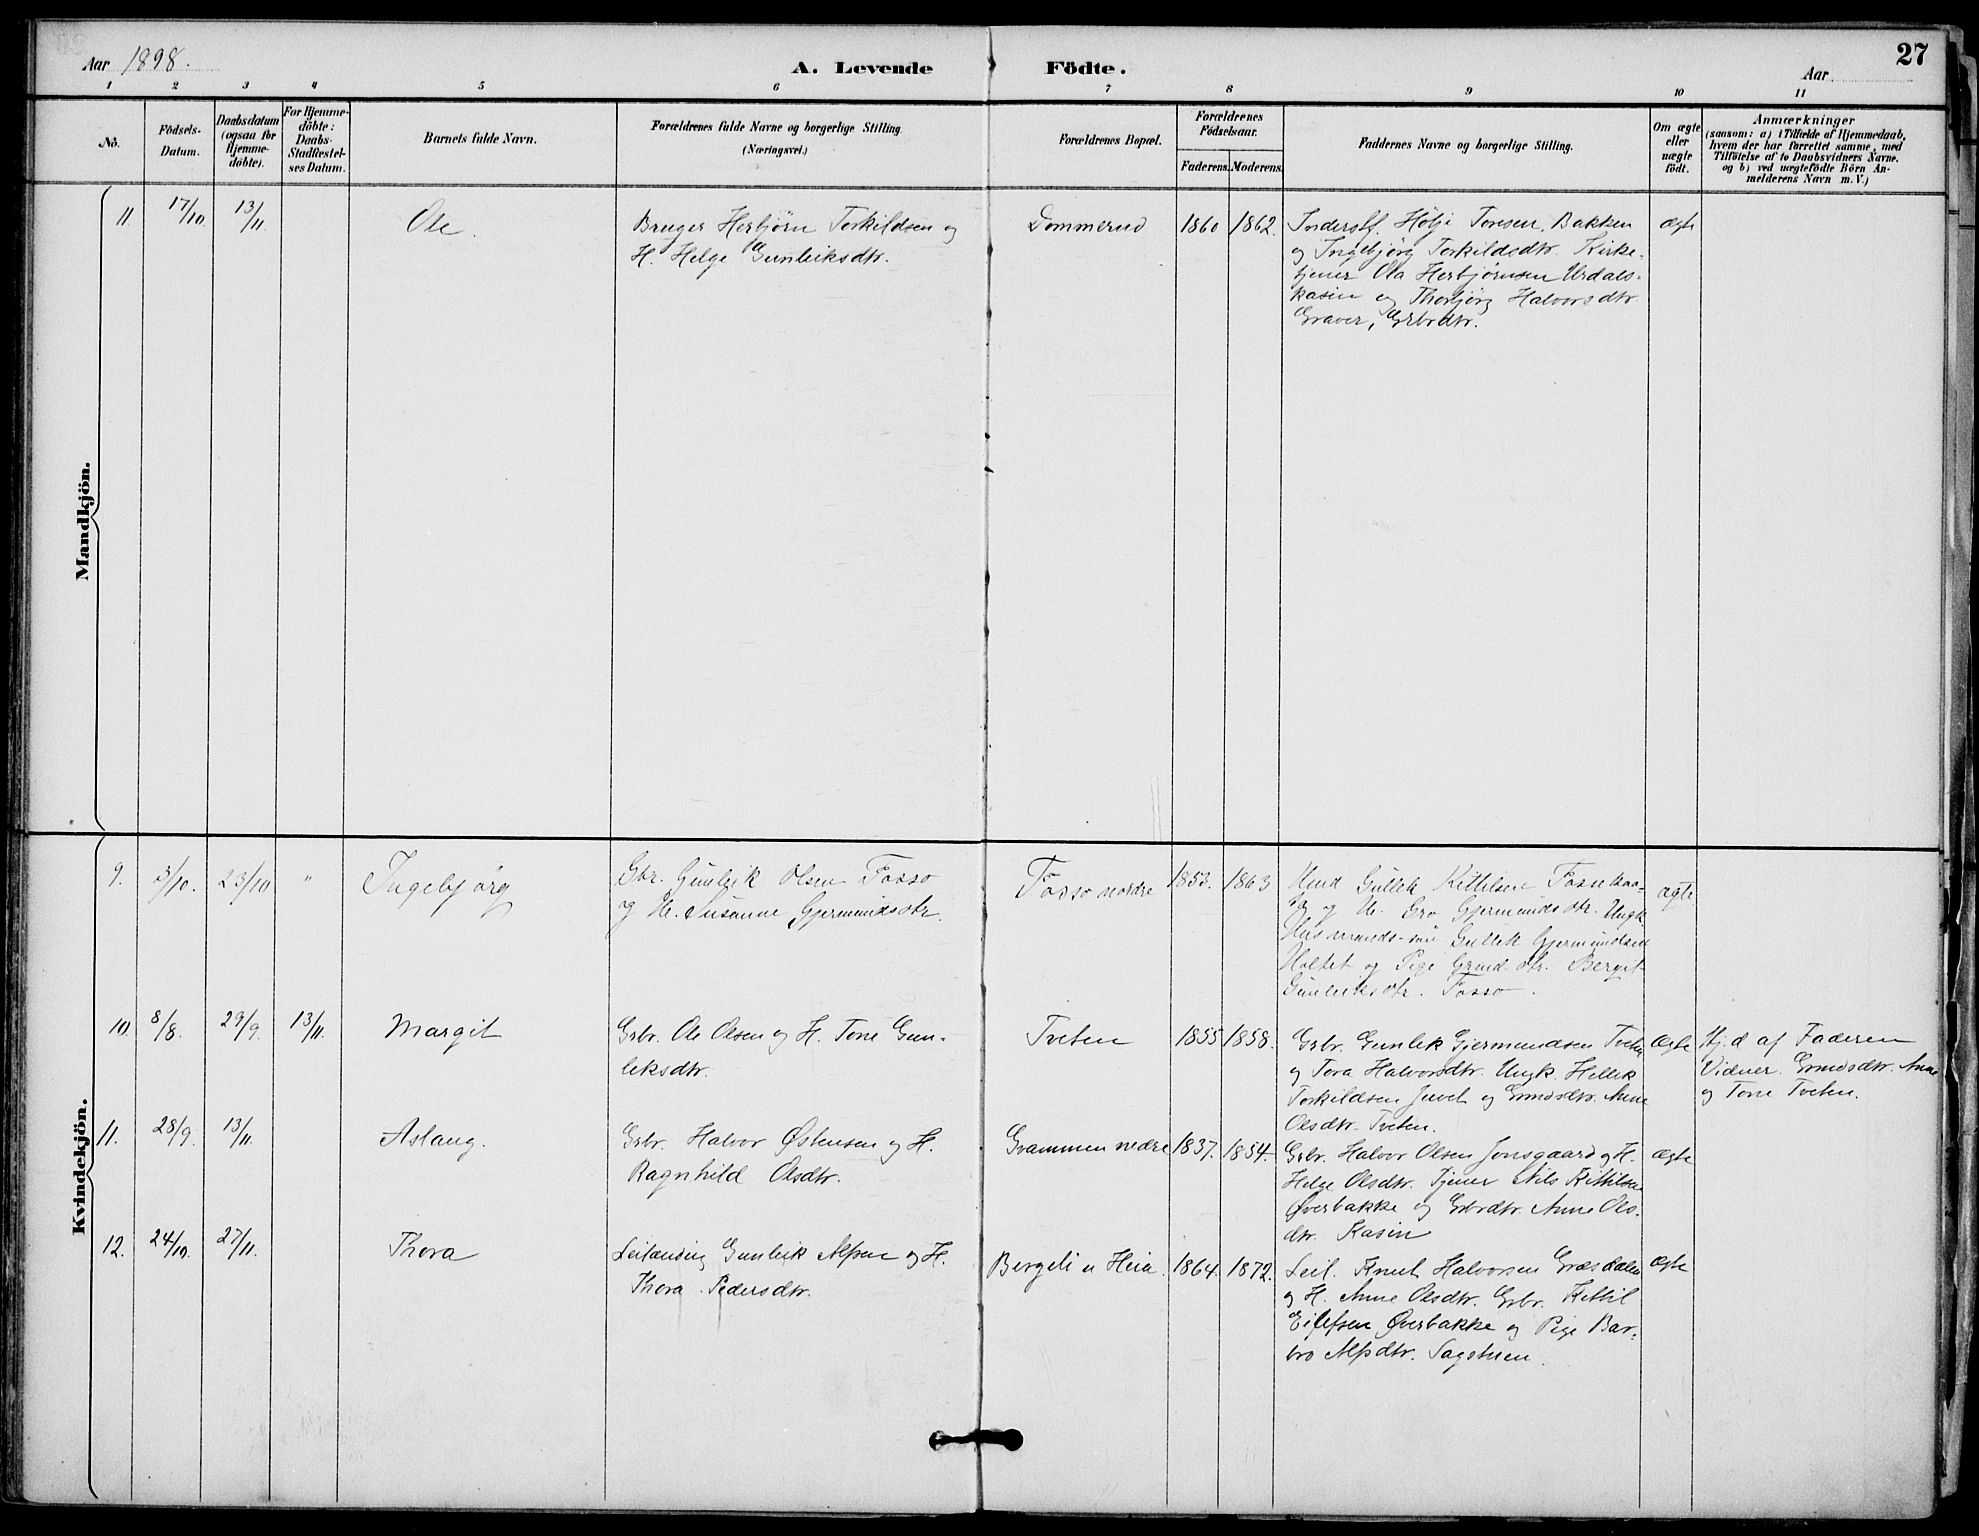 27
Aar 1898.
A. Levende Födte.
Aar
1 2 3 4 5 6 7 8 9 10 11
No.
Födsels-
Datum.
Daabsdatum
(ogsaa for
Hjemme-
döbte).
For Hjemme-
döbte:
Daabs-
Stadfæstel-
ses Datum.
Barnets fulde Navn.
Forældrenes fulde Navne og borgerlige Stilling.
(Næringsvei.)
Forældrenes Bopæl.
Forældrenes
Födselsaar.
Faderens. Moderens.
Faddernes Navne og borgerlige Stilling.
Om ægte
eller
uægte
födt.
Anmærkninger
(saasom: a) i Tilfælde af Hjemmedaab,
hvem der har forrettet samme, med
Tilföielse af to Daabsvidners Navne.
og b) ved uægtefödte Börn An-
melderens Navn m. V.)
Mandkjön.
11 17/10. 13/11
Ole.
Bruger Herbjørn Torkildsen og
H. Helga Gunleiksdtr.
Dommerud
1860 1862.
Inderstf. Hølje Tonsen, Bakken
og Ingebjörg Torkildsdtr. Kirke-
tjener Ola Herbjørnsen Urdals-
kasin og Thorbjörg Halvorsdtr
Graver, Grbrdtr.
ægte
Kvindekjön.
9. 3/10. 23/10 "
Ingebjörg
Gbr. Gunleik Olsen Fosso
og H. Susanne Gjermundsdtr.
Fosso nordre
1853. 1863
Gullek Kittelsen
og H. Gro Gjermundsdtr. Ungk.
Husmands-sön Gullek Gjermundsen
Holtet og Pige Grmd.dtr. Bergit
Gunleiksdtr. Fosso.
ægte
10. 8/8. 29/9. 13/11.
Margit
Grbr. Ole Olsen og H. Tone Gun-
leksdtr.
Tveten
1855 1858.
Grbr. Gunlek Gjermundsen Tveten
og Tora Halvorsdtr. Ungk. Hellek
Torkildsen Juvet og Grmdsdtr. Anne
Olsdtr. Tveten.
Ægte
Hj.d af Faderen
Vidner. Grmdsdtr. Anne
og Tone Tveten.
11. 28/9. 13/11.
Aslaug.
Grbr. Halvor Østensen og H.
Ragnhild Olsdtr.
Grammen nedre
1837. 1854.
Grbr. Halvor Olsen Jonsgaard og H.
Helge Olsdtr. Tjener Nils Kittilsen
Øverbakke og Grbrdtr. Anne Ols-
dtr. Kasin
Ægte
12. 24/10. 27/11.
Thora
Leilænding Gunleik Alfsen og H.
Thora Pedersdtr.
Bergeli u Heia.
1864. 1872.
Leil. Knut Halvorsen Græsdalen
og H. Anne Olsdtr. Grbr. Kittil
Eilefsen Øverbakke og Pige Bar-
bro Alfsdtr. Sagstuen.
Ægte